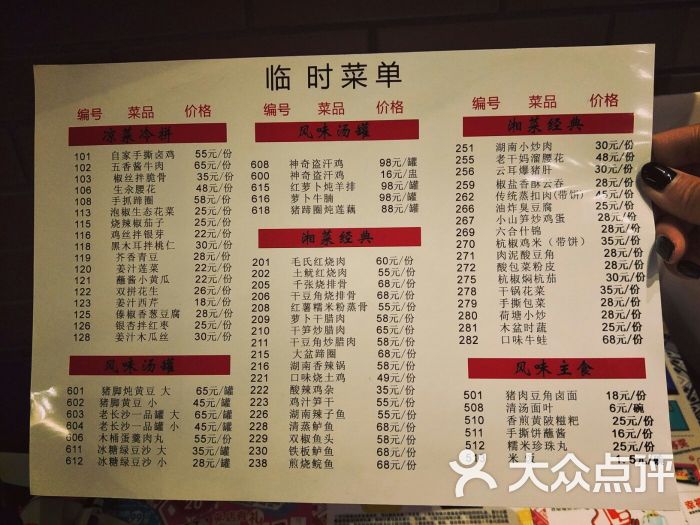 临时菜单
编号 菜品 价格
凉菜冷拼
101 自家手撕卤鸡 55元/份
102 五香酱牛肉 65元/份
103 椒丝拌脆骨 35元/份
106 生汆腰花 48元/份
108 手抓蹄圈 58元/份
113 泡椒生态花菜 25元/份
115 烧辣椒茄子 25元/份
116 鸡丝拌银芽 22元/份
118 黑木耳拌桃仁 30元/份
119 芥香青豆 28元/份
120 姜汁莲菜 22元/份
121 蘸酱小黄瓜 22元/份
122 双拼花生 26元/份
123 姜汁西芹 18元/份
125 傣椒香葱豆腐 28元/份
126 银杏拌红枣 25元/份
128 姜汁木瓜丝 30元/份
风味汤罐
601 猪脚炖黄豆 大 65元/罐
602 猪脚黄豆 小 45元/罐
603 老长沙一品罐 大 65元/罐
604 老长沙一品罐 小 45元/罐
606 木桶蛋羹肉丸 55元/份
611 冰糖绿豆沙 大 35元/罐
612 冰糖绿豆沙 小 28元/罐
编号 菜品 价格
风味汤罐
608 神奇盗汗鸡 98元/罐
600 神奇盗汗鸡 16元/盅
615 红萝卜炖羊排 98元/罐
616 萝卜牛腩 98元/罐
618 猪蹄圈炖莲藕 88元/罐
湘菜经典
201 毛氏红烧肉 60元/份
202 土鱿红烧肉 55元/份
205 千张烧排骨 68元/份
206 干豆角烧排骨 68元/份
208 红薯糯米粉蒸骨 68元/份
209 萝卜干腊肉 55元/份
210 干笋炒腊肉 65元/份
211 干豆角炒腊肉 58元/份
215 大盆蹄圈 68元/份
216 湖南香辣锅 58元/份
221 口味烧土鸡 49元/份
222 酸辣鸡杂 35元/份
223 鸡汁笋干 55元/份
226 湖南辣子鱼 58元/份
228 清蒸鲈鱼 68元/份
229 双椒鱼头 58元/份
230 铁板鲈鱼 68元/份
238 煎烧鲩鱼 68元/份
编号 菜品 价格
湘菜经典
251 湖南小炒肉 30元/份
255 老干妈溜腰花 48元/份
256 云耳爆猪肝 30元/份
259 椒盐香酥云吞 28元/份
262 传统蒸扣肉(带饼) 45元/份
266 油炸臭豆腐 25元/份
267 小山笋炒鸡蛋 28元/份
269 六合什锦 28元/份
270 杭椒鸡米(带饼) 35元/份
271 肉泥酸豆角 28元/份
272 酸包菜粉皮 28元/份
275 杭椒焖杭茄 30元/份
278 干锅花菜 35元/份
279 手撕包菜 28元/份
280 荷塘小炒 28元/份
281 木盆时蔬 25元/份
282 口味牛蛙 68元/份
风味主食
501 猪肉豆角卤面 18元/份
508 清汤面叶 6元/碗
510 香煎黄陂糍粑 25元/份
511 手撕饼蘸酱 16元/份
512 糯米珍珠丸 25元/份
米 1.5元/
大众点评